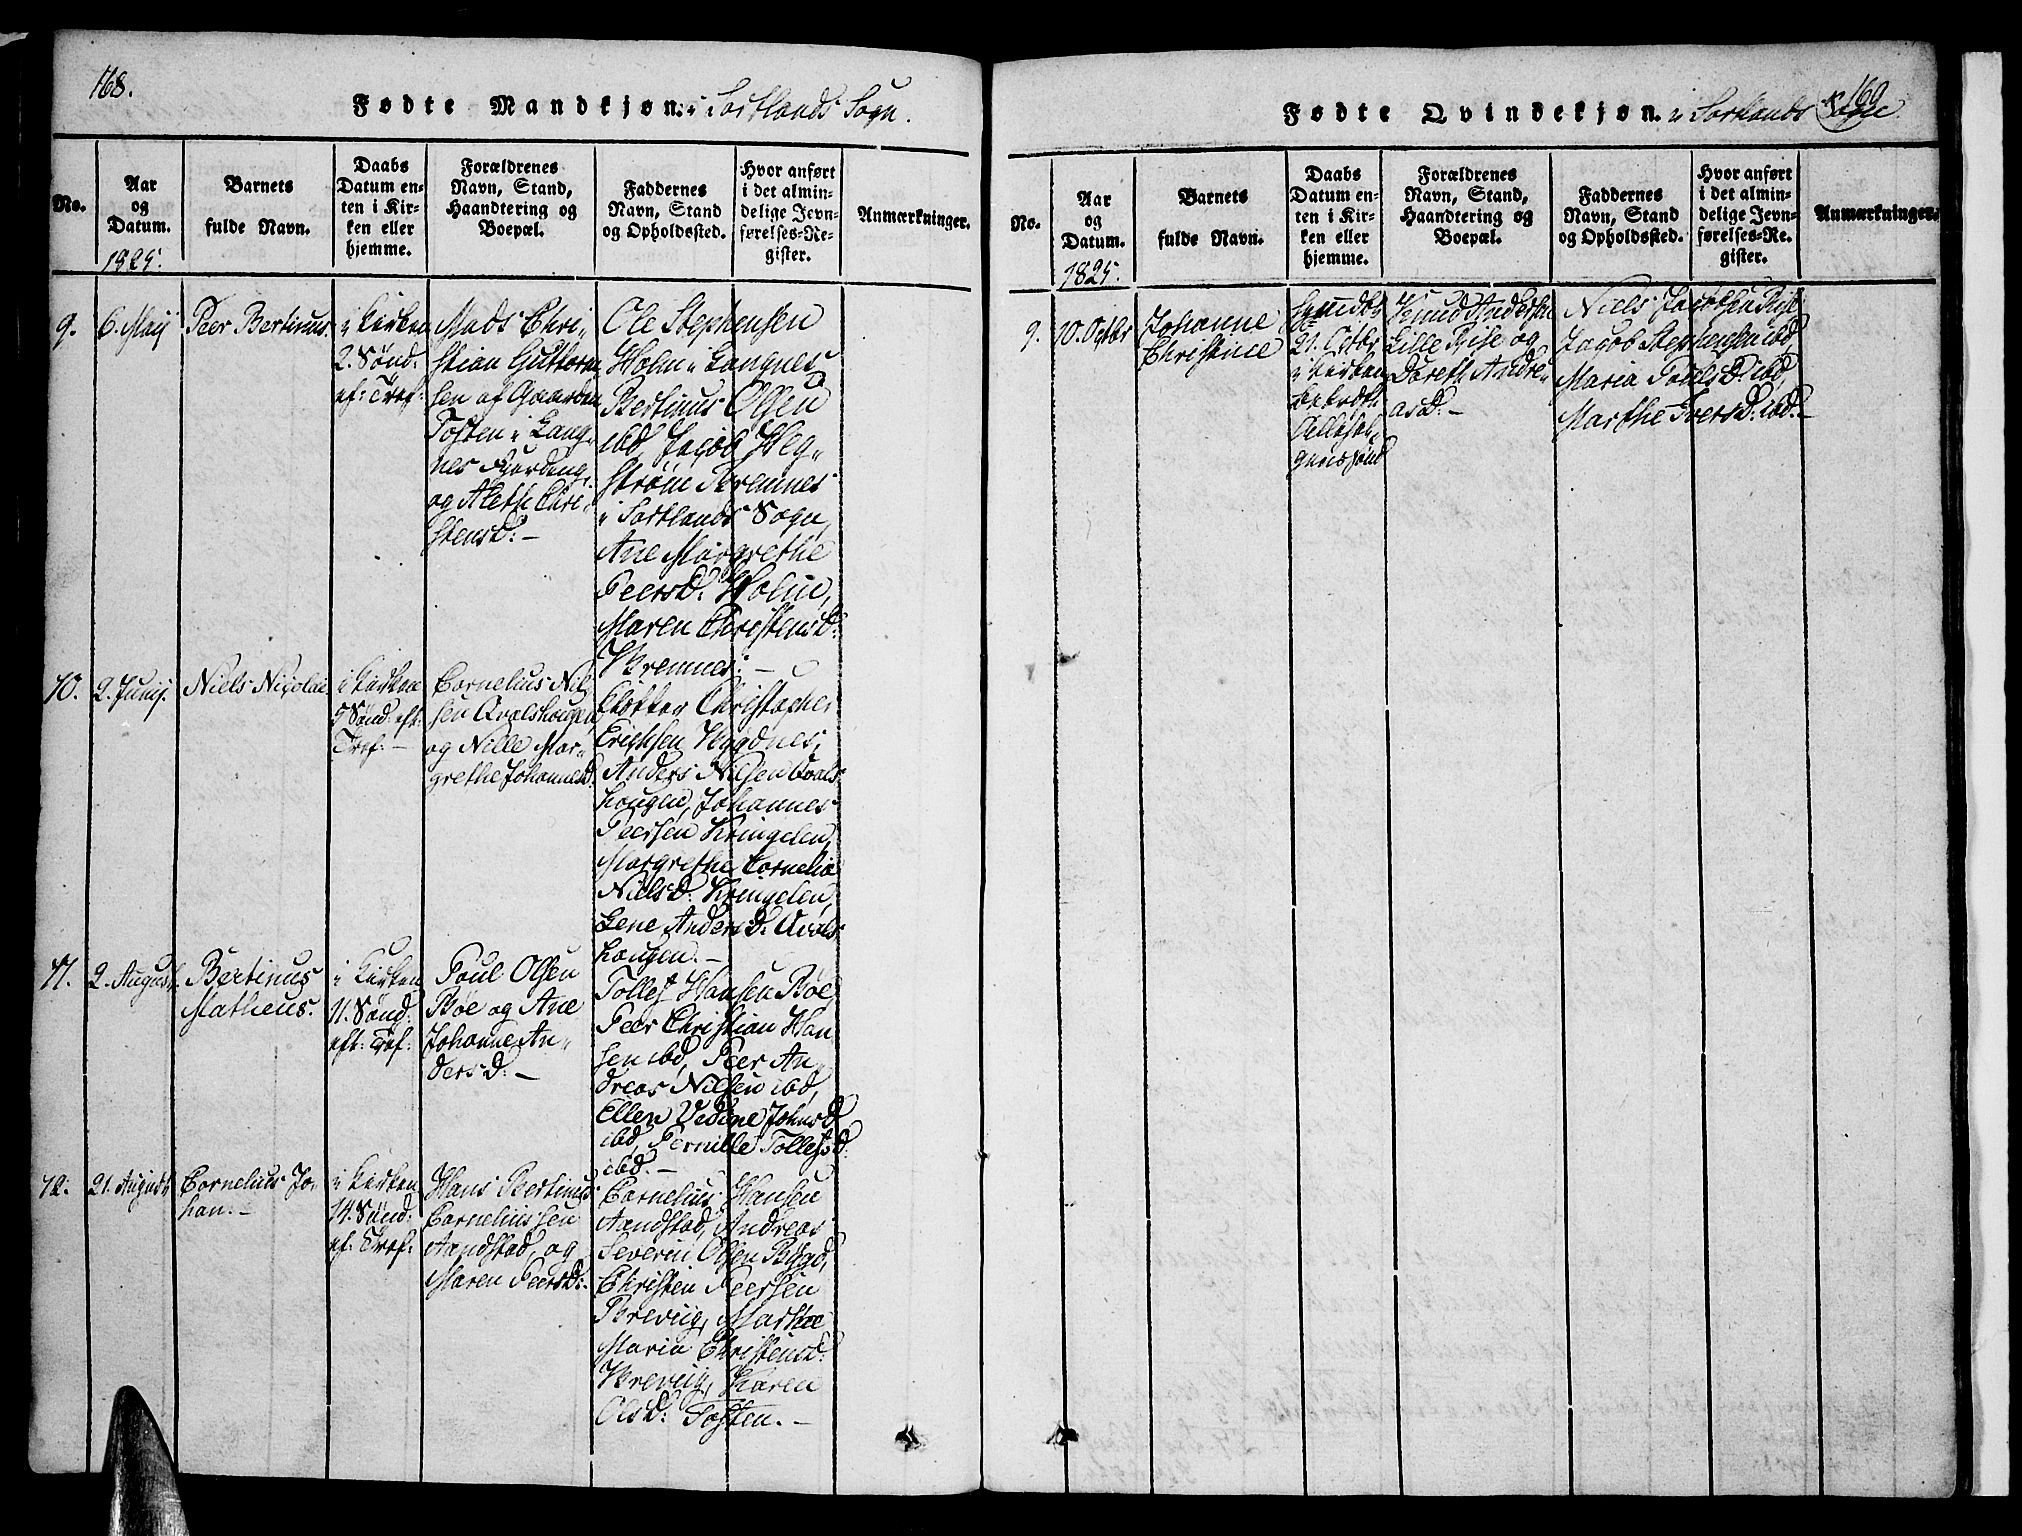 168.
Fødte Mandkjøn. i Sortlands Sogn.
No.
Aar
og
Datum.
1825.
Barnets
fulde Navn.
Daabs
Datum en-
ten i Kir-
ken eller
hjemme.
Forældrenes
Navn, Stand,
Haandtering og
Boepæl.
Faddernes
Navn, Stand
og Opholdssted.
Hvor anført
i det almin-
delige Jevn-
førelses-Re-
gister.
Anmærkninger.
9.
6. Maij
Peer Bertinus.
i Kirken
2. Sønd:
ef: Tref:
Mads Chri-
stian Guttorm-
sen af Gaarden
Tosten i Lang-
nes Fjerding,
og Aleth Chri-
stensd: –
Ole Stephensen
Holm i Langnes,
Bertinus Olsen
ibd, Jacob Weg-
strøm Bremnes
i Sortlands Sogn,
Ane Margrethe
Peersd: Holm,
Maren Christensd:
Bremnes: –
10.
2. Junij.
Niels Nicolai
i Kirken
5 Sønd: eft:
Tref: –
Cornelius Nil-
sen Qvalshougen,
og Nille Mar-
grethe Johannesd:
Klokker Christopher
Ericksen Vigdnes,
Anders Nilsen Qvals-
hougen, Johannes
Peersen Kringelen,
Margrethe Cornelia
Nielsd: Kringelen,
Lene Andersd: Qvals-
hougen. –
11.
2. August.
Bertinus
Matheus.
i Kirken
11. Sønd:
eft: Tref:
Poul Olsen
Bøe og Ane
Johanne An-
dersd: –
Tollef Hansen Bøe,
Peer Christian Han-
sen ibd, Peer An-
dreas Nilsen ibd,
Ellen Vedine Johnsd
ibd, Pernille Tollefsd:
ibd. –
12.
21. August.
Cornelius Jo-
han. –
i Kirken
14. Sønd:
ef: Tref:
Hans Bertinus
Corneliussen
Aandstad, og
Maren Peersd:
Cornelius Hansen
Aandstad, Andreas
Severin Olsen Bygd,
Christen Peersen
Breviig, Marthe
Maria Christensd:
Breviig, Karen
Olsd: Tosten. –
169
Fødte Qvindekjøn. i Sortlands Sogn.
No.
Aar
og
Datum.
1825.
Barnets
fulde Navn.
Daabs
Datum en-
ten i Kir-
ken eller
hjemme.
Forældrenes
Navn, Stand,
Haandtering og
Boepæl.
Faddernes
Navn, Stand
og Opholdssted.
Hvor anført
i det almin-
delige Jevn-
førelses-Re-
gister.
Anmærkninger.
9.
10. Octbr
Johanne
Christine
21. Octbr
i Kirken
bekræft:
Allehel-
gensssønd
Knud Andersen
Lille Riise og
Doreth Andre-
asd: –
Niels Jacobsen Riise
Jacob Stephensen ibd,
Maria Poulsd: ibd,
Marthe Iversd: ibd. –